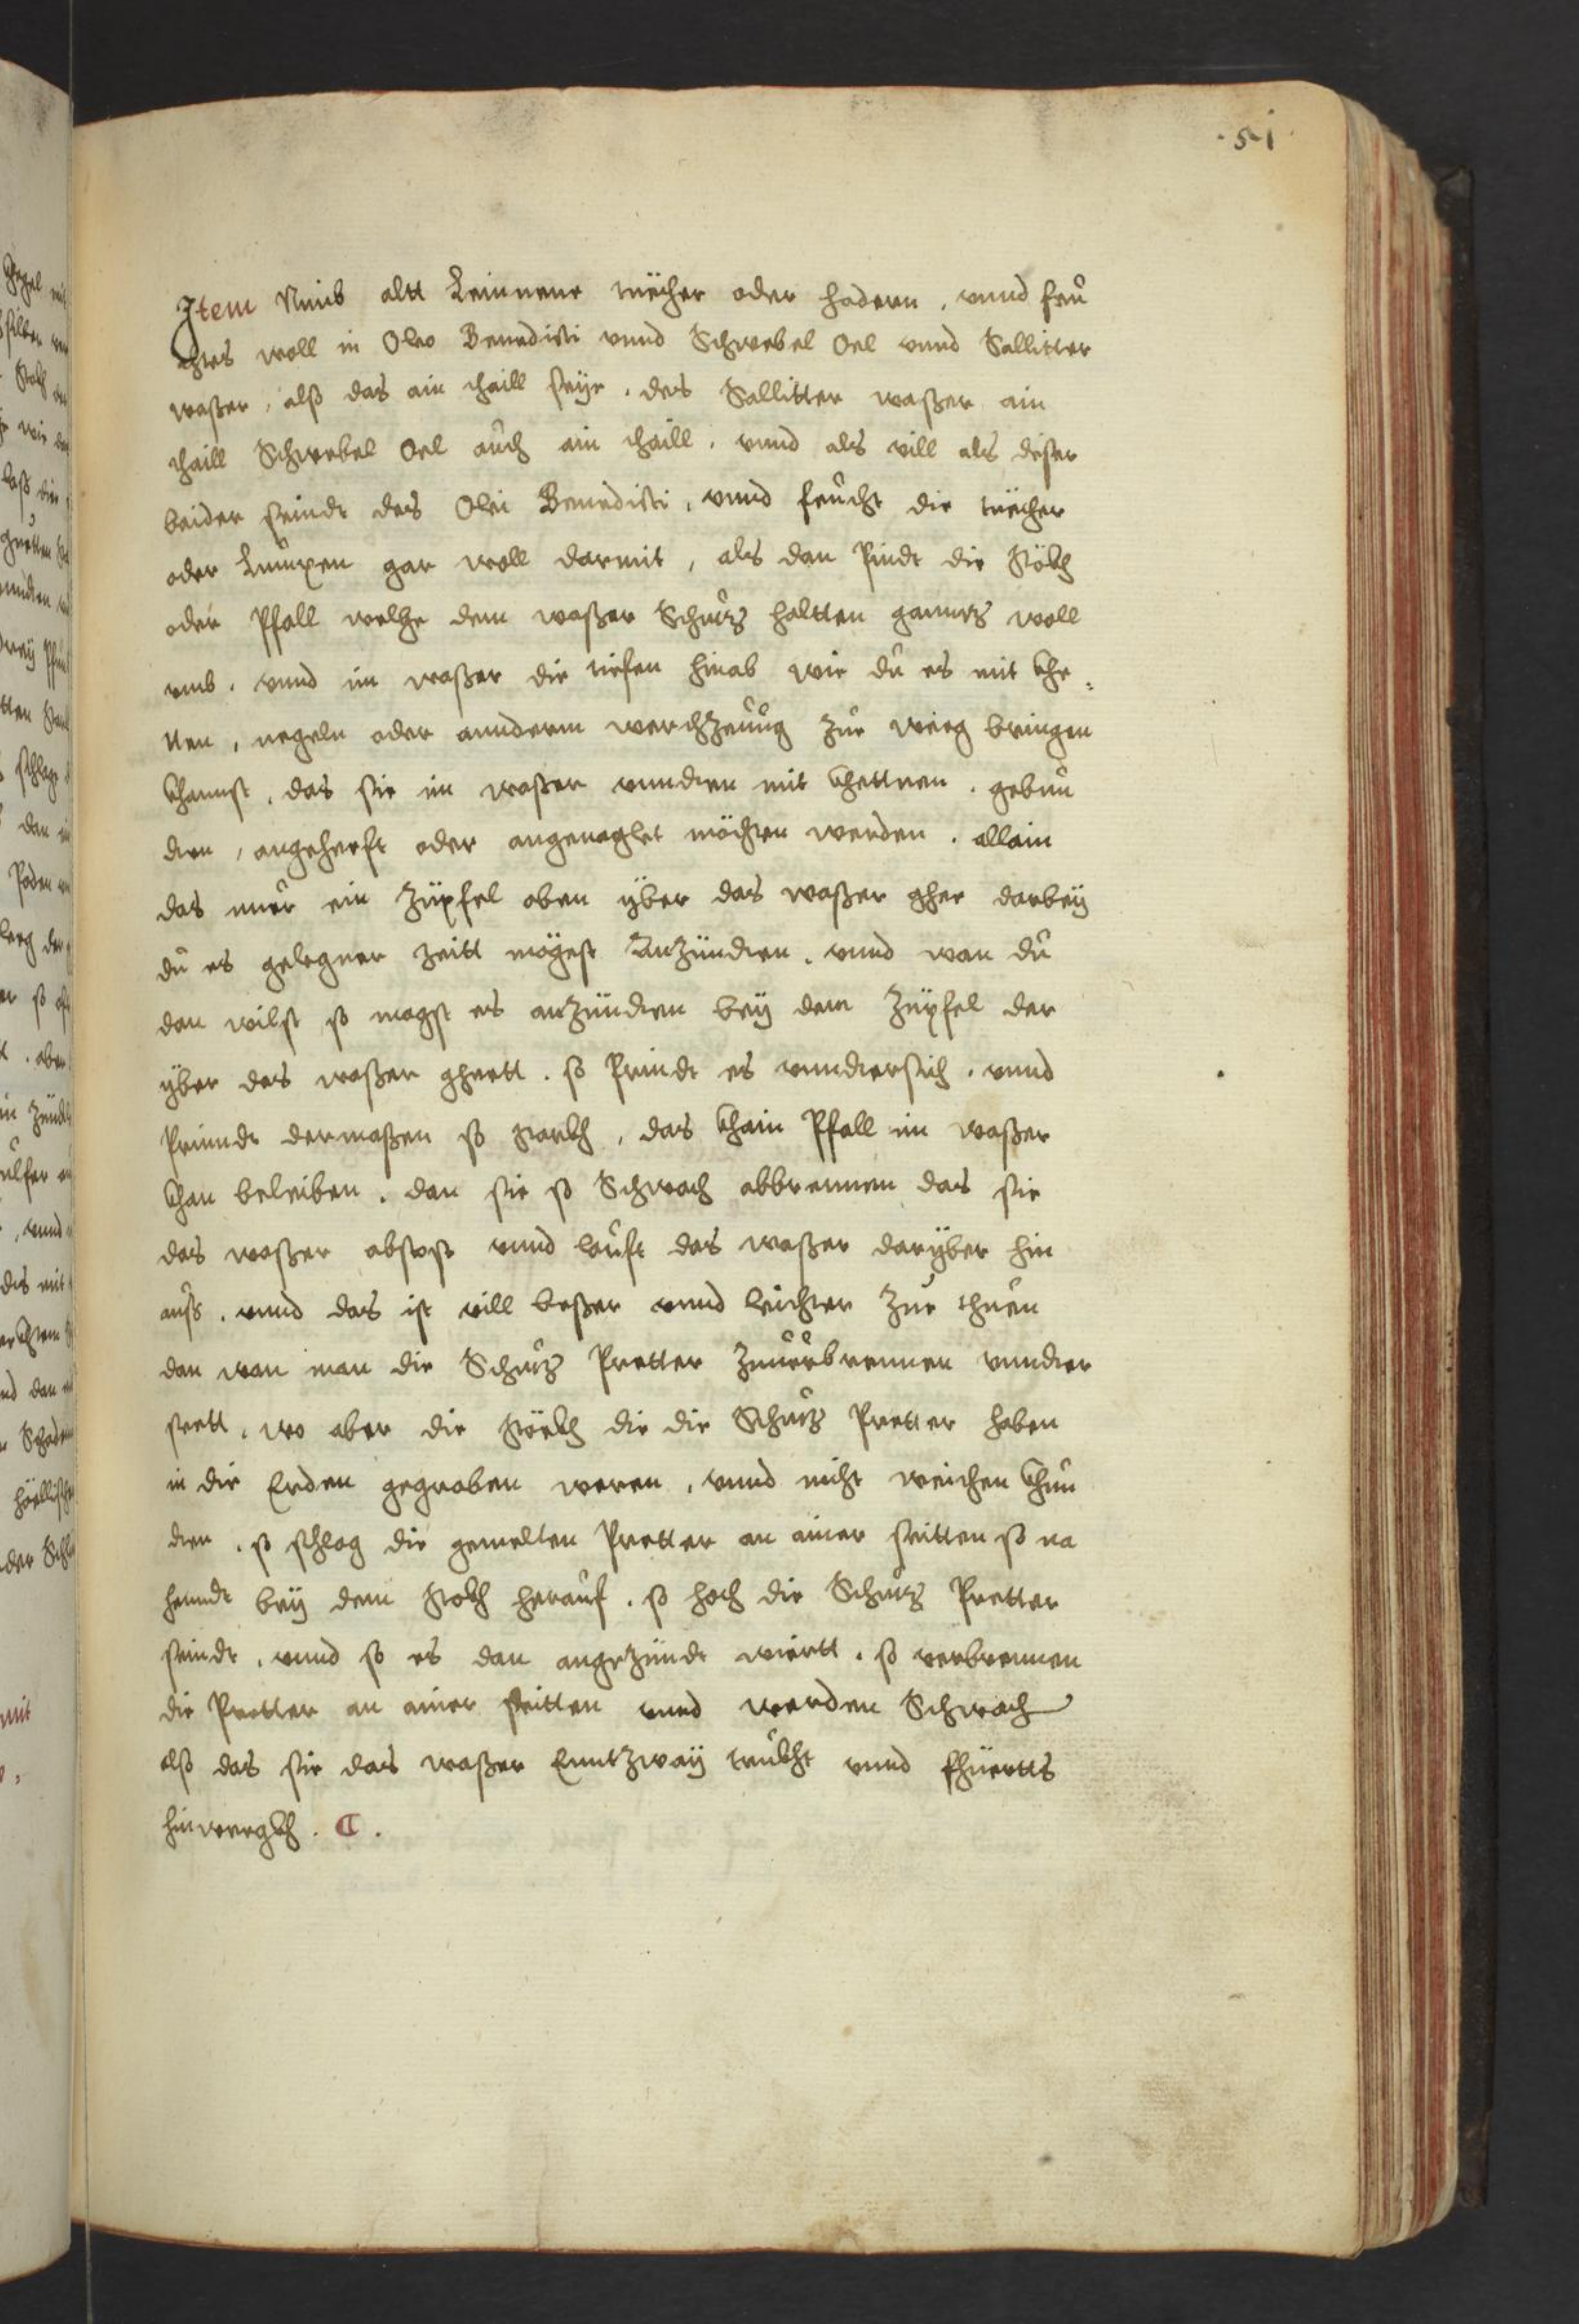 .51.
Item Nimb altt Leinnene tüecher oder hadern. vnnd feu
chtes woll in Oleo Benedicti vnnd Schwebel Oel vnnd Sallitter
waßer, alß das ain thaill seÿe. des Sallitter waßer ain
thaill Schwebel Oel auch ain thaill. vnnd als vill als dißer
beider seindt des Olei Benedicti, vnnd feucht die tüecher
oder Lumpen gar woll darmit, als dan Pindt die Stökh
oder Pfall welhe dem waßer Schutz haltten ganntz woll
vmb. vnnd im waßer die tiefen hinab wie du es mit khe,
tten, negeln oder annderm werchzeuug zur weeg bringen
khannst. das sie im waßer vundten mit khettnen. gebun
den, angeheeft oder angenaglet möchten werden. allain
das nur ein züpfel oben ÿber das waßer ghee darbeÿ
du es gelegner zeitt mögest Anzündten. vnnd wan du
dan wilst so magst es anzündten beÿ dem züpfel der
ÿber das waßer gheett. so Prindt es vnndtersich. vnnd
Prinndt dermaßen so starkh, das khain Pfall im waßer
khan beleiben. dan sie so Schwach abbrennen das sie
das waßer abstost vnnd lauft das waßer darÿber hin
auß. vnnd das ist vill beßer vnnd leichter zue thuen
dan wan man die Schutz Pretter zuuerbrennen vnnder
steett. wo aber die Stöckh die die Schutz Pretter haben
in die Erden gegraben weren, vnnd nicht weichen khun
den. so schlag die gemelten Pretter an ainer seitten so na
henndt beÿ dem Stokh herauf. so hoch die Schutz Pretter
seindt. vnnd so es dan angezündt wiertt. so verbrennen
die Pretter an ainer seitten vnnd werden Schwach
alß das sie das waßer Enntzwaÿ trukht vnnd fhüertts
hinweegkh. C.